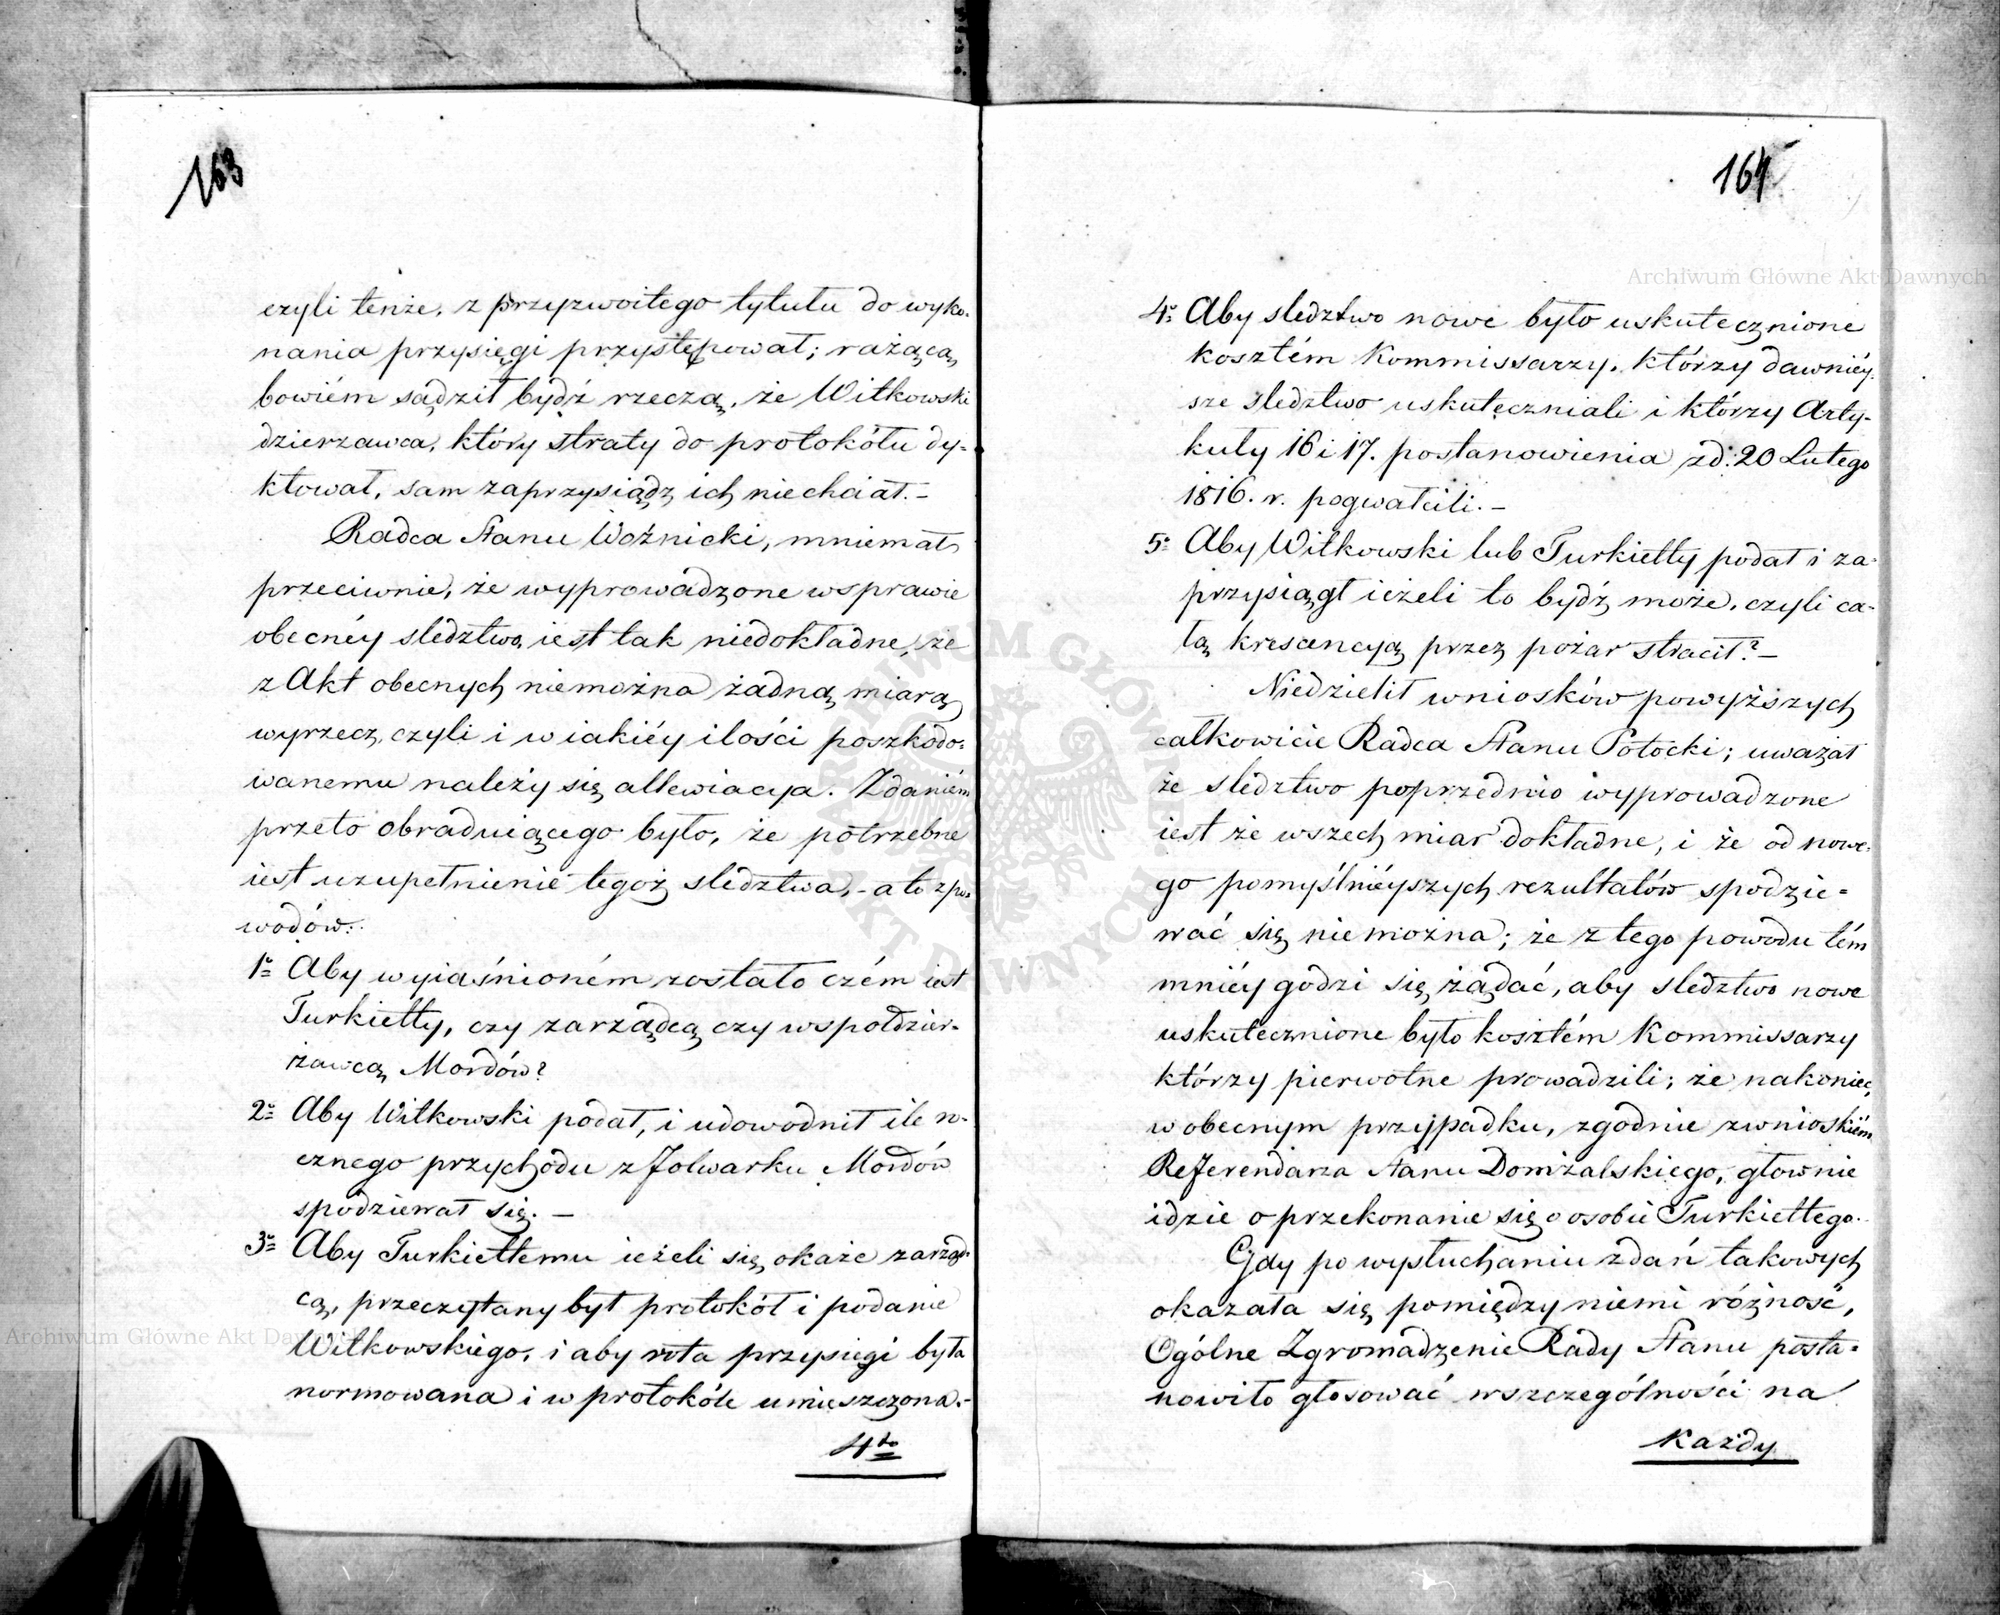 163
czyli tenże, z przyzwoitego tytułu do wyko-
nania przysięgi przystępował; rażącą
bowiém sądził bydź rzeczą, że Witkowski
dzierzawca, który straty do protokółu dy-
ktował, sam zaprzysiądz ich niechciał.-
Radca Stanu Woźnicki, mniemał
przeciwnie, że wyprowadzone w sprawie
obecnéy sledztwo, iest tak niedokładne, że
z Akt obecnych niemożna żadną miarą
wyrzecz, czyli i w iakiéy ilości poszkodo-
wanemu należy się allewiacya. Zdaniém
przeto obraduiącego było, że potrzebne
iest uzupełnienie tegoż sledztwa, - a to z po-
wodów:
1o Aby wyiaśnioném zostało czém iest
Turkiełły, czy zarządcą czy wspołdzier-
żawcą Mordów?
2o Aby Witkowski podał, i udowodnił ile ro-
cznego przychodu z folwarku Mordów
spodziewał się. -
3o Aby Turkiełłemu ieżeli się okaże zarząd-
cą, przeczytany był protokół i podanie
Witkowskiego, i aby rota przysięgi była
normowana i w protokóle umieszczona.-
4to
164
4o Aby sledztwo nowe było uskutecznione
kosztém Kommissarzy, którzy dawniéy-
sze sledztwo uskuteczniali i którzy Arty-
kuły 16 i 17. postanowienia z d: 20 Lutego
1816. r. pogwałcili. -
5o Aby Witkowski lub Turkiełły podał i za-
przysiągł ieżeli to bydź może, czyli ca-
łą krescencyą przez pożar stracił? -
Niedzielił wniosków powyższych
całkowicie Radca Stanu Potocki; uważał
że sledztwo poprzednio wyprowadzone
iest że wszech miar dokładne, i że od nowe-
go pomyślniéyszych rezultatów spodzie-
wać się niemożna; że z tego powodu tém
mniéy godzi się żądać, aby sledztwo nowe
uskutecznione było kosztém Kommissarzy
którzy pierwotne prowadzili; że nakoniec,
w obecnym przypadku, zgodnie z wnioskiém
Referendarza Stanu Domżalskiego, głownie
idzie o przekonanie się o osobie Turkiełłego.
Gdy po wysłuchaniu zdań takowych
okazała się pomiędzy niemi różność,
Ogólne Zgromadzenie Rady Stanu posta-
nowiło głosować wszczególności na
każdy
Archiwum Główne Akt Dawnych
Archiwum Główne Akt Dawnych
ARCHIWUM GŁÓWNE AKT DAWNYCH